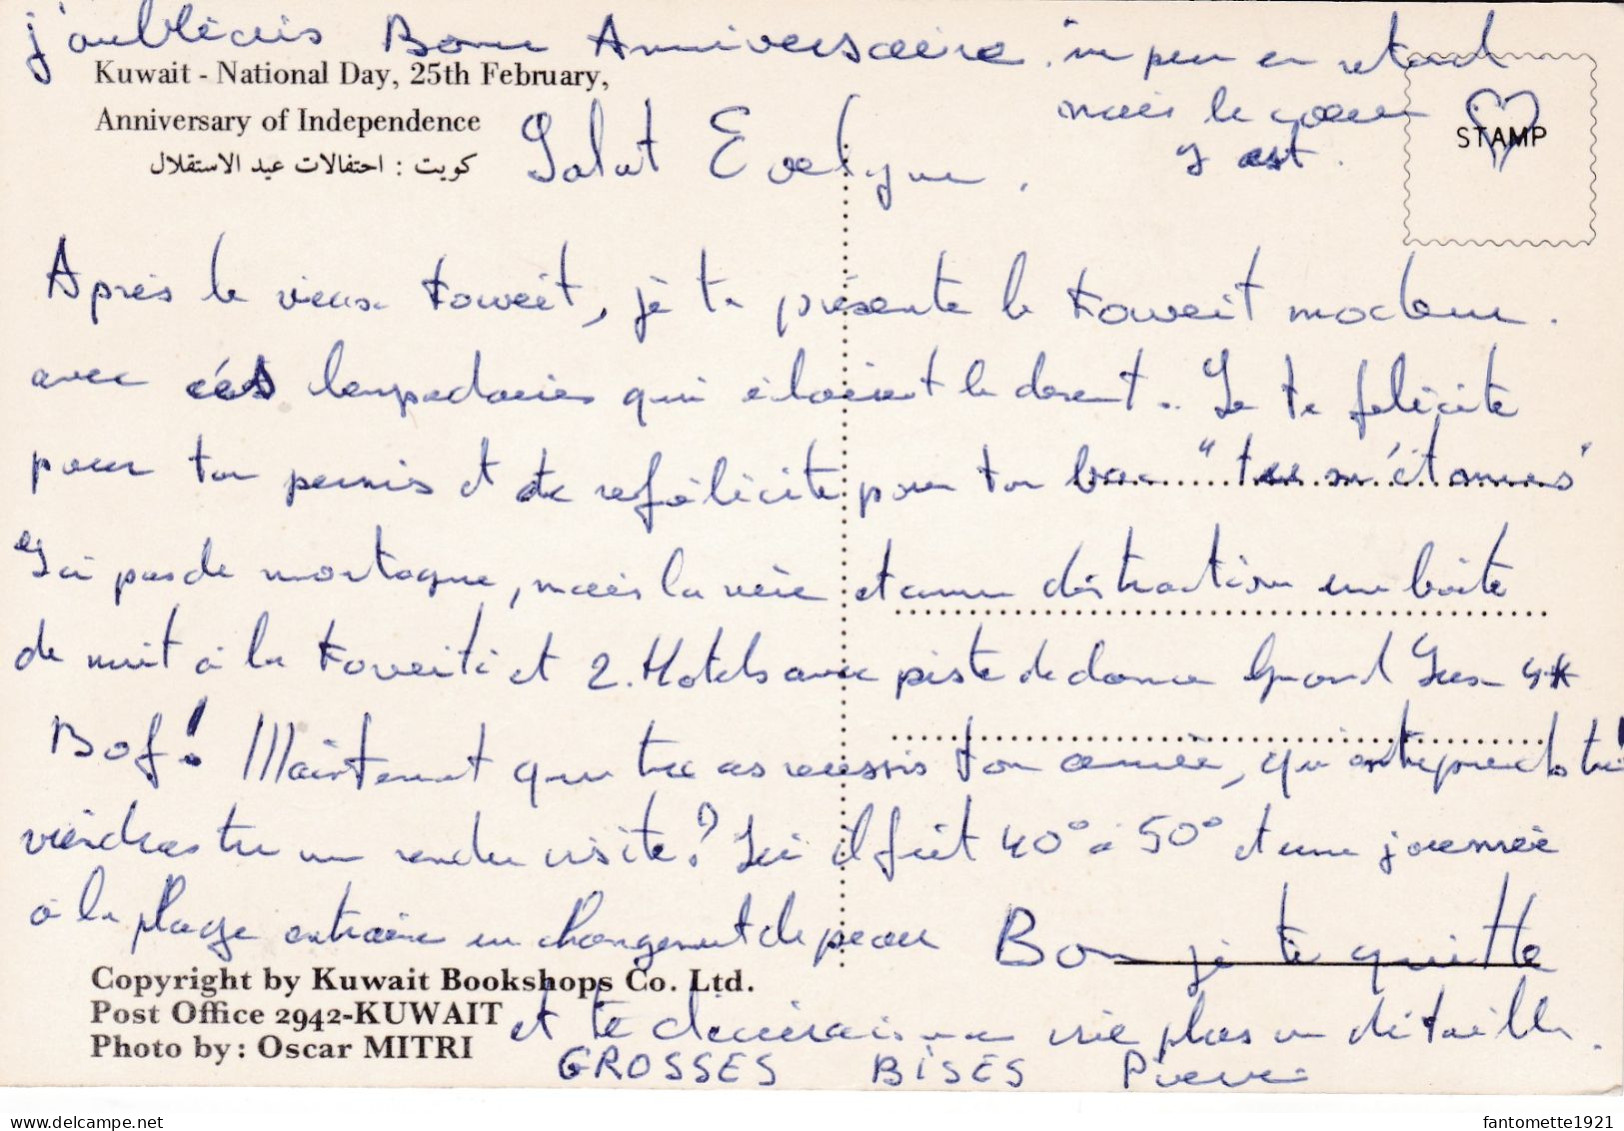 j'oubliais Bonne Anniversaire. un peu en retard
mais le coeur
y est.
Kuwait - National Day, 25th February,
Anniversary of Independence
كويت : احتفالات عيد الاستقلال
STAMP
Salut Evelyne,
Après le vieux Koweit, je te présente le Koweit moderne.
avec ces lampadaires qui éclairent le desert.. Je te félicite
pour ton permis et te refélicite pour ton bac "tu m'étonnes"
Ici pas de montagne, mais la mer et comme distraction une boite
de nuit à la Koweiti et 2 Hotels avec piste de danse Grand Luxe 4*
Bof! Maintenant que tu as reussis ton année, qu'entreprends tu!
viendras tu me rendre visite? Ici il fait 40° à 50° et une journée
à la plage entraine un changement de peau Bon je te quitte
et te decrirais ma vie plus en détaille.
GROSSES BISES Pierre
Copyright by Kuwait Bookshops Co. Ltd.
Post Office 2942-KUWAIT
Photo by: Oscar MITRI
fantomette1921